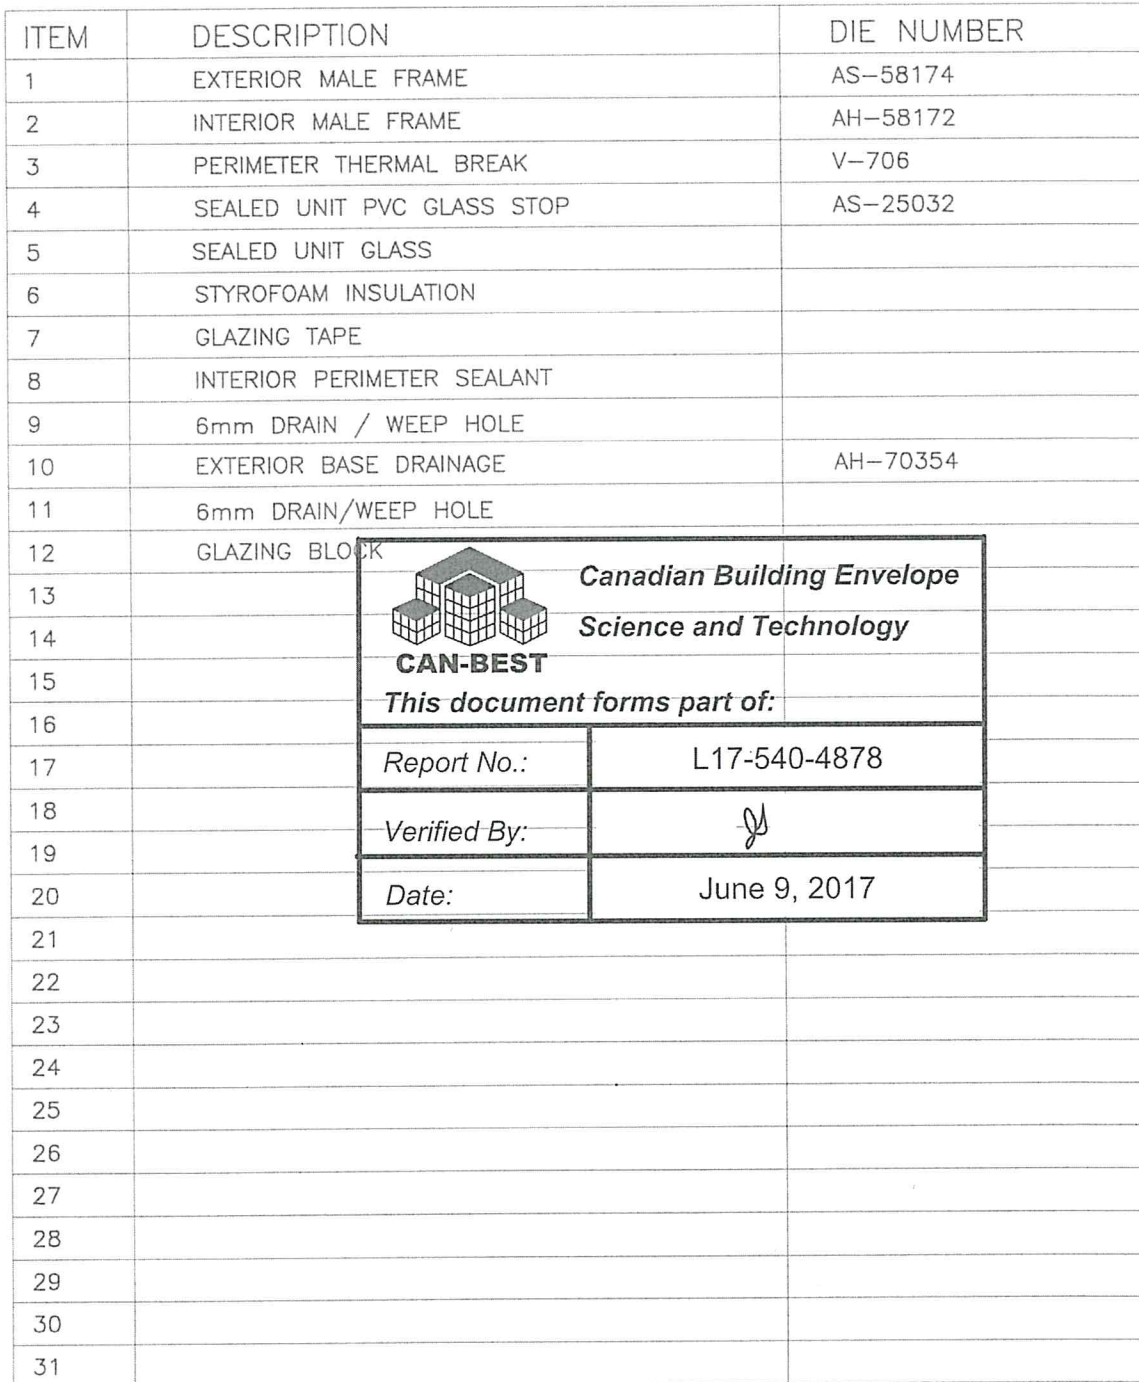 ITEM DESCRIPTION DIE NUMBER
1 EXTERIOR MALE FRAME AS-58174
2 INTERIOR MALE FRAME AH-58172
3 PERIMETER THERMAL BREAK V-706
4 SEALED UNIT PVC GLASS STOP AS-25032
5 SEALED UNIT GLASS
6 STYROFOAM INSULATION
7 GLAZING TAPE
8 INTERIOR PERIMETER SEALANT
9 6mm DRAIN / WEEP HOLE
10 EXTERIOR BASE DRAINAGE AH-70354
11 6mm DRAIN/WEEP HOLE
12 GLAZING BLOCK
13
14
15
16
17
18
19
20
21
22
23
24
25
26
27
28
29
30
31
Canadian Building Envelope
Science and Technology
CAN-BEST
This document forms part of:
Report No.: L17-540-4878
Verified By:
Date: June 9, 2017